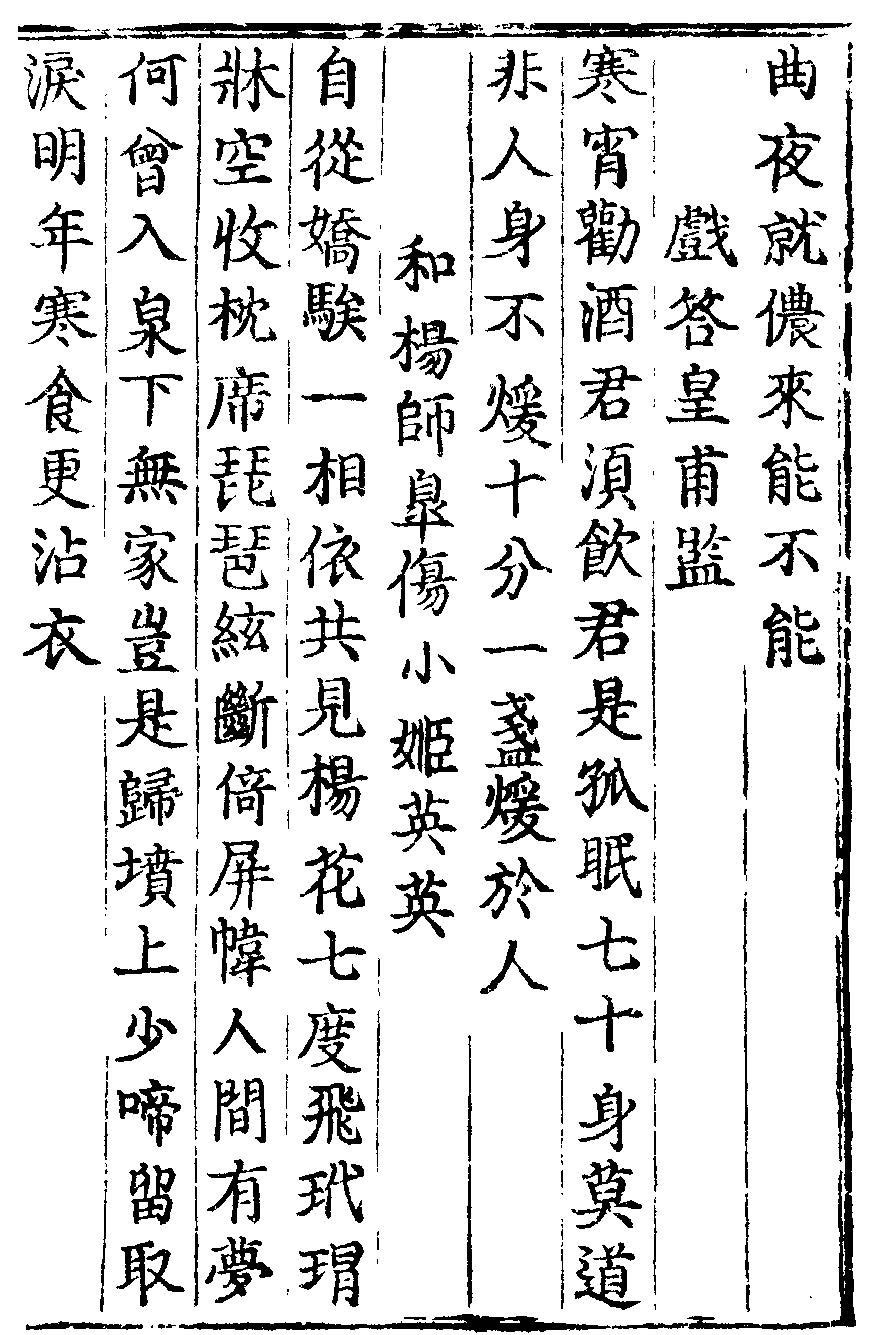 曲夜就儂來能不能
戲答皇甫監
寒宵勸酒君須飲君是孤眠七十身莫道
非人身不煖十分一盞煖於人
和楊師皐傷小姬英英
自從嬌騃一相依共見楊花七度飛玳瑁
牀空收枕席琵琶絃斷倚屏幃人間有夢
何曾入泉下無家豈是歸墳上少啼留取
淚明年寒食更沾衣